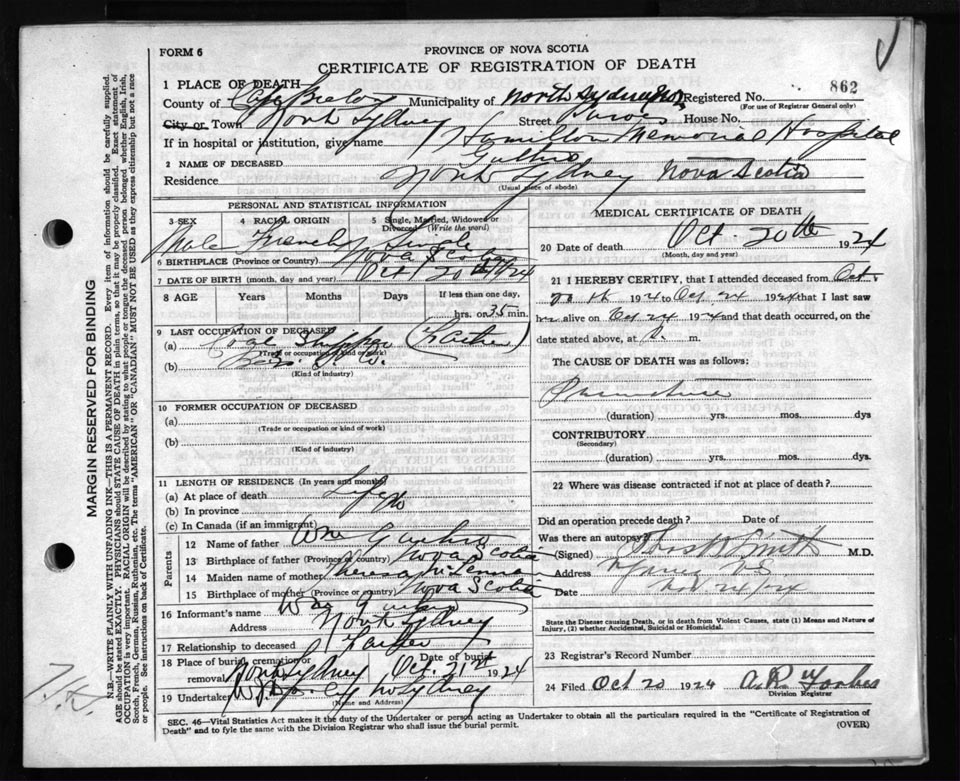 FORM 6
PROVINCE OF NOVA SCOTIA
CERTIFICATE OF REGISTRATION OF DEATH
862
1 PLACE OF DEATH
County of Cape Breton Municipality of North Sydney Registered No.
(For use of Registrar General only)
City or Town North Sydney Street House No.
If in hospital or institution, give name Hamilton Memorial Hospital
2 NAME OF DECEASED
Residence North Sydney Nova Scotia
(Usual place of abode)
PERSONAL AND STATISTICAL INFORMATION
3 SEX 4 RACIAL ORIGIN 5 Single, Married, Widowed or Divorced (Write the word)
Male French Single
6 BIRTHPLACE (Province or Country) Nova Scotia
7 DATE OF BIRTH (month, day and year) Oct 20th/24
8 AGE Years Months Days If less than one day,
hrs. or 35 min.
9 LAST OCCUPATION OF DECEASED
(a) Coal (Father)
(Trade or occupation or kind of work)
(b)
(Kind of industry)
10 FORMER OCCUPATION OF DECEASED
(a)
(Trade or occupation or kind of work)
(b)
(Kind of industry)
11 LENGTH OF RESIDENCE (In years and months)
(a) At place of death Life
(b) In province
(c) In Canada (if an immigrant)
Parents
12 Name of father Wm
13 Birthplace of father (Province or country) Nova Scotia
14 Maiden name of mother Theresa
15 Birthplace of mother (Province or country) Nova Scotia
16 Informant's name Wm
Address North Sydney
17 Relationship to deceased Father
18 Place of burial, cremation or removal North Sydney Date of burial Oct 21st 1924
19 Undertaker No Sydney
(Name and Address)
MEDICAL CERTIFICATE OF DEATH
20 Date of death Oct. 20th 1924
(Month, day and year)
21 I HEREBY CERTIFY, that I attended deceased from Oct.
1924 to Oct 24 1924 that I last saw
h alive on Oct 24 1924 and that death occurred, on
date stated above, at m.
The CAUSE OF DEATH was as follows:
Premature
(duration) yrs. mos. dys
CONTRIBUTORY
(Secondary)
(duration) yrs. mos. dys
22 Where was disease contracted if not at place of death?
Did an operation precede death? Date of
Was there an autopsy?
(Signed) M.D.
Address
Date
State the Disease causing Death, or in death from Violent Causes, state (1) Means and Nature of
Injury, (2) whether Accidental, Suicidal or Homicidal.
23 Registrar's Record Number
24 Filed Oct 20 1924 A.R. Forbes
Division Registrar
SEC. 46—Vital Statistics Act makes it the duty of the Undertaker or person acting as Undertaker to obtain all the particulars required in the "Certificate of Registration of
Death" and to fyle the same with the Division Registrar who shall issue the burial permit.
(OVER)
MARGIN RESERVED FOR BINDING
N.B.—WRITE PLAINLY WITH UNFADING INK—THIS IS A PERMANENT RECORD. Every item of information should be carefully supplied.
AGE should be stated EXACTLY. PHYSICIANS should STATE CAUSE OF DEATH in plain terms, so that it may be properly classified. Exact statement of
OCCUPATION is very important. RACIAL ORIGIN will be described by stating to what people or tongue the deceased person belonged, whether English, Irish,
Scotch, French, German, Russian, Ruthenian, etc. The terms "AMERICAN" OR "CANADIAN" MUST NOT BE USED as they express citizenship but not a race
or people. See instructions on back of Certificate.